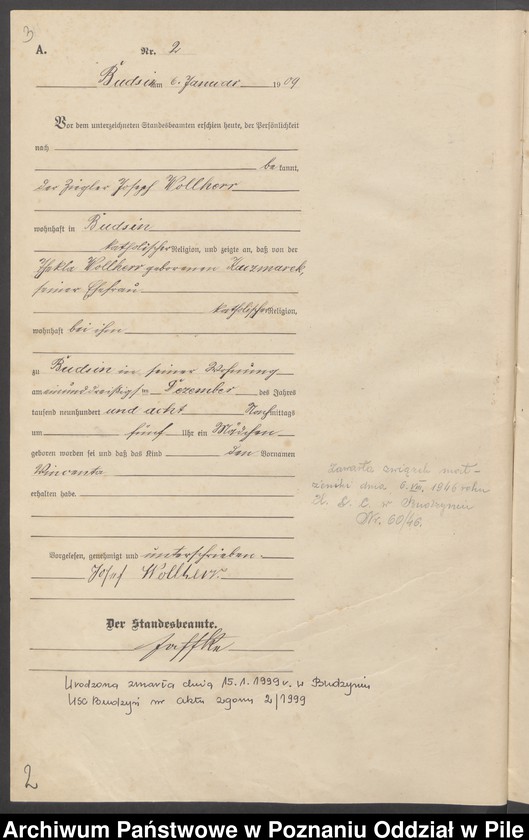 3
A.
Nr. 2
Budsin am 6. Januar 1909
Vor dem unterzeichneten Standesbeamten erschien heute, der Persönlichkeit
nach
be kannt,
der Ziegler Joseph Wollherr
wohnhaft in Budsin
katholischer Religion, und zeigte an, daß von der
Thekla Wollherr geborenen Kuzmarek,
seiner Ehefrau
katholischer Religion,
wohnhaft bei ihm
zu Budsin in seiner Wohnung
am einunddreißigsten Dezember des Jahres
tausend neunhundert und acht Nachmittags
um fünf Uhr ein Mädchen
geboren worden sei und daß das Kind den Vornamen
Wincenta
erhalten habe.
Zawarła związek mał-
żeński dnia 6. VII. 1946 roku
U. S. C. w Budzyniu
Nr. 60/46.
Vorgelesen, genehmigt und unterschrieben
Josef Wollherr
Der Standesbeamte.
Jaffke
Urodzona zmarła dnia 15.1.1999 r. w Budzyniu
USC Budzyń nr aktu zgonu 2/1999
2
Archiwum Państwowe w Poznaniu Oddział w Pile